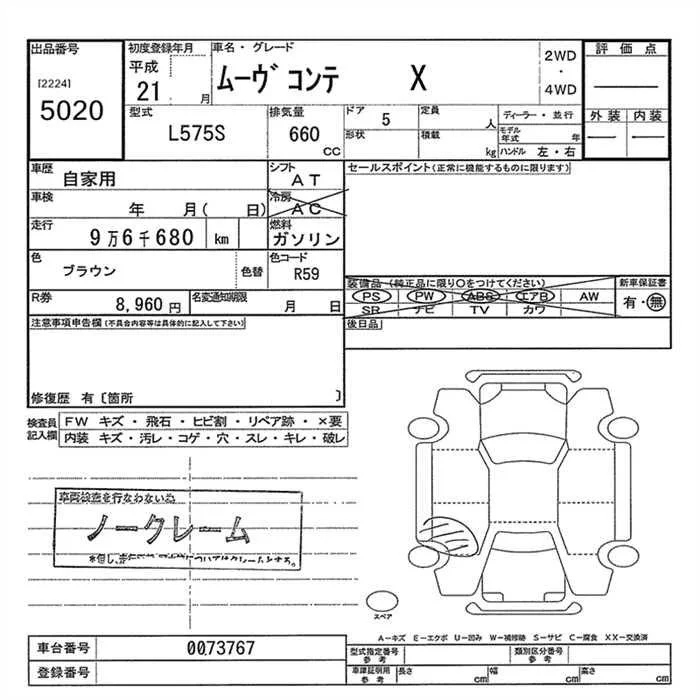 出品番号
[2224]
5020
初度登録年月
平成
21 . 月
車名・グレード
ムーヴ コンテ X
2WD
・
4WD
評価点
外装 内装
型式
L575S
排気量
660
CC
ドア
5
形状
定員
人
積載
kg
ディーラー・並行
モデル
年式 年
ハンドル 左・右
車歴
自家用
シフト
AT
車検
年 月( 日)
冷房
AC
走行
9万6千680 km
燃料
ガソリン
色
ブラウン
色替
色コード
R59
R券
8,960 円
名変通知期限
月 日
セールスポイント(正常に機能するものに限ります)
装備品(純正品に限り○をつけてください)
PS PW ABS エアB AW
SR ナビ TV カワ
新車保証書
有・無
後日品
注意事項申告欄(不具合内容等は具体的に記入して下さい)
修復歴 有〔箇所 〕
検査員
記入欄
FW キズ・飛石・ヒビ割・リペア跡・×要
内装 キズ・汚レ・コゲ・穴・スレ・キレ・破レ
車両検査を行なわない為
ノークレーム
スペア
A−キズ E−エクボ U−凹み W−補修跡 S−サビ C−腐食 XX−交換済
車台番号 0073767
登録番号
型式指定番号
参考
類別区分番号
参考
車庫証明用
参考
長さ cm 幅 cm 高さ cm